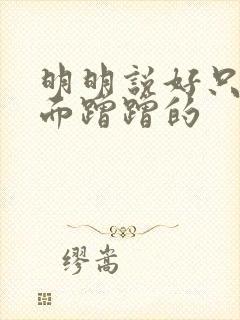 明明说好只
而蹭蹭的
缪嵩